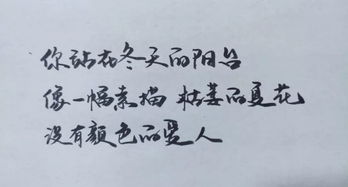 你站在冬天的阳台
像一幅素描 枯萎的夏花
没有颜色的爱人